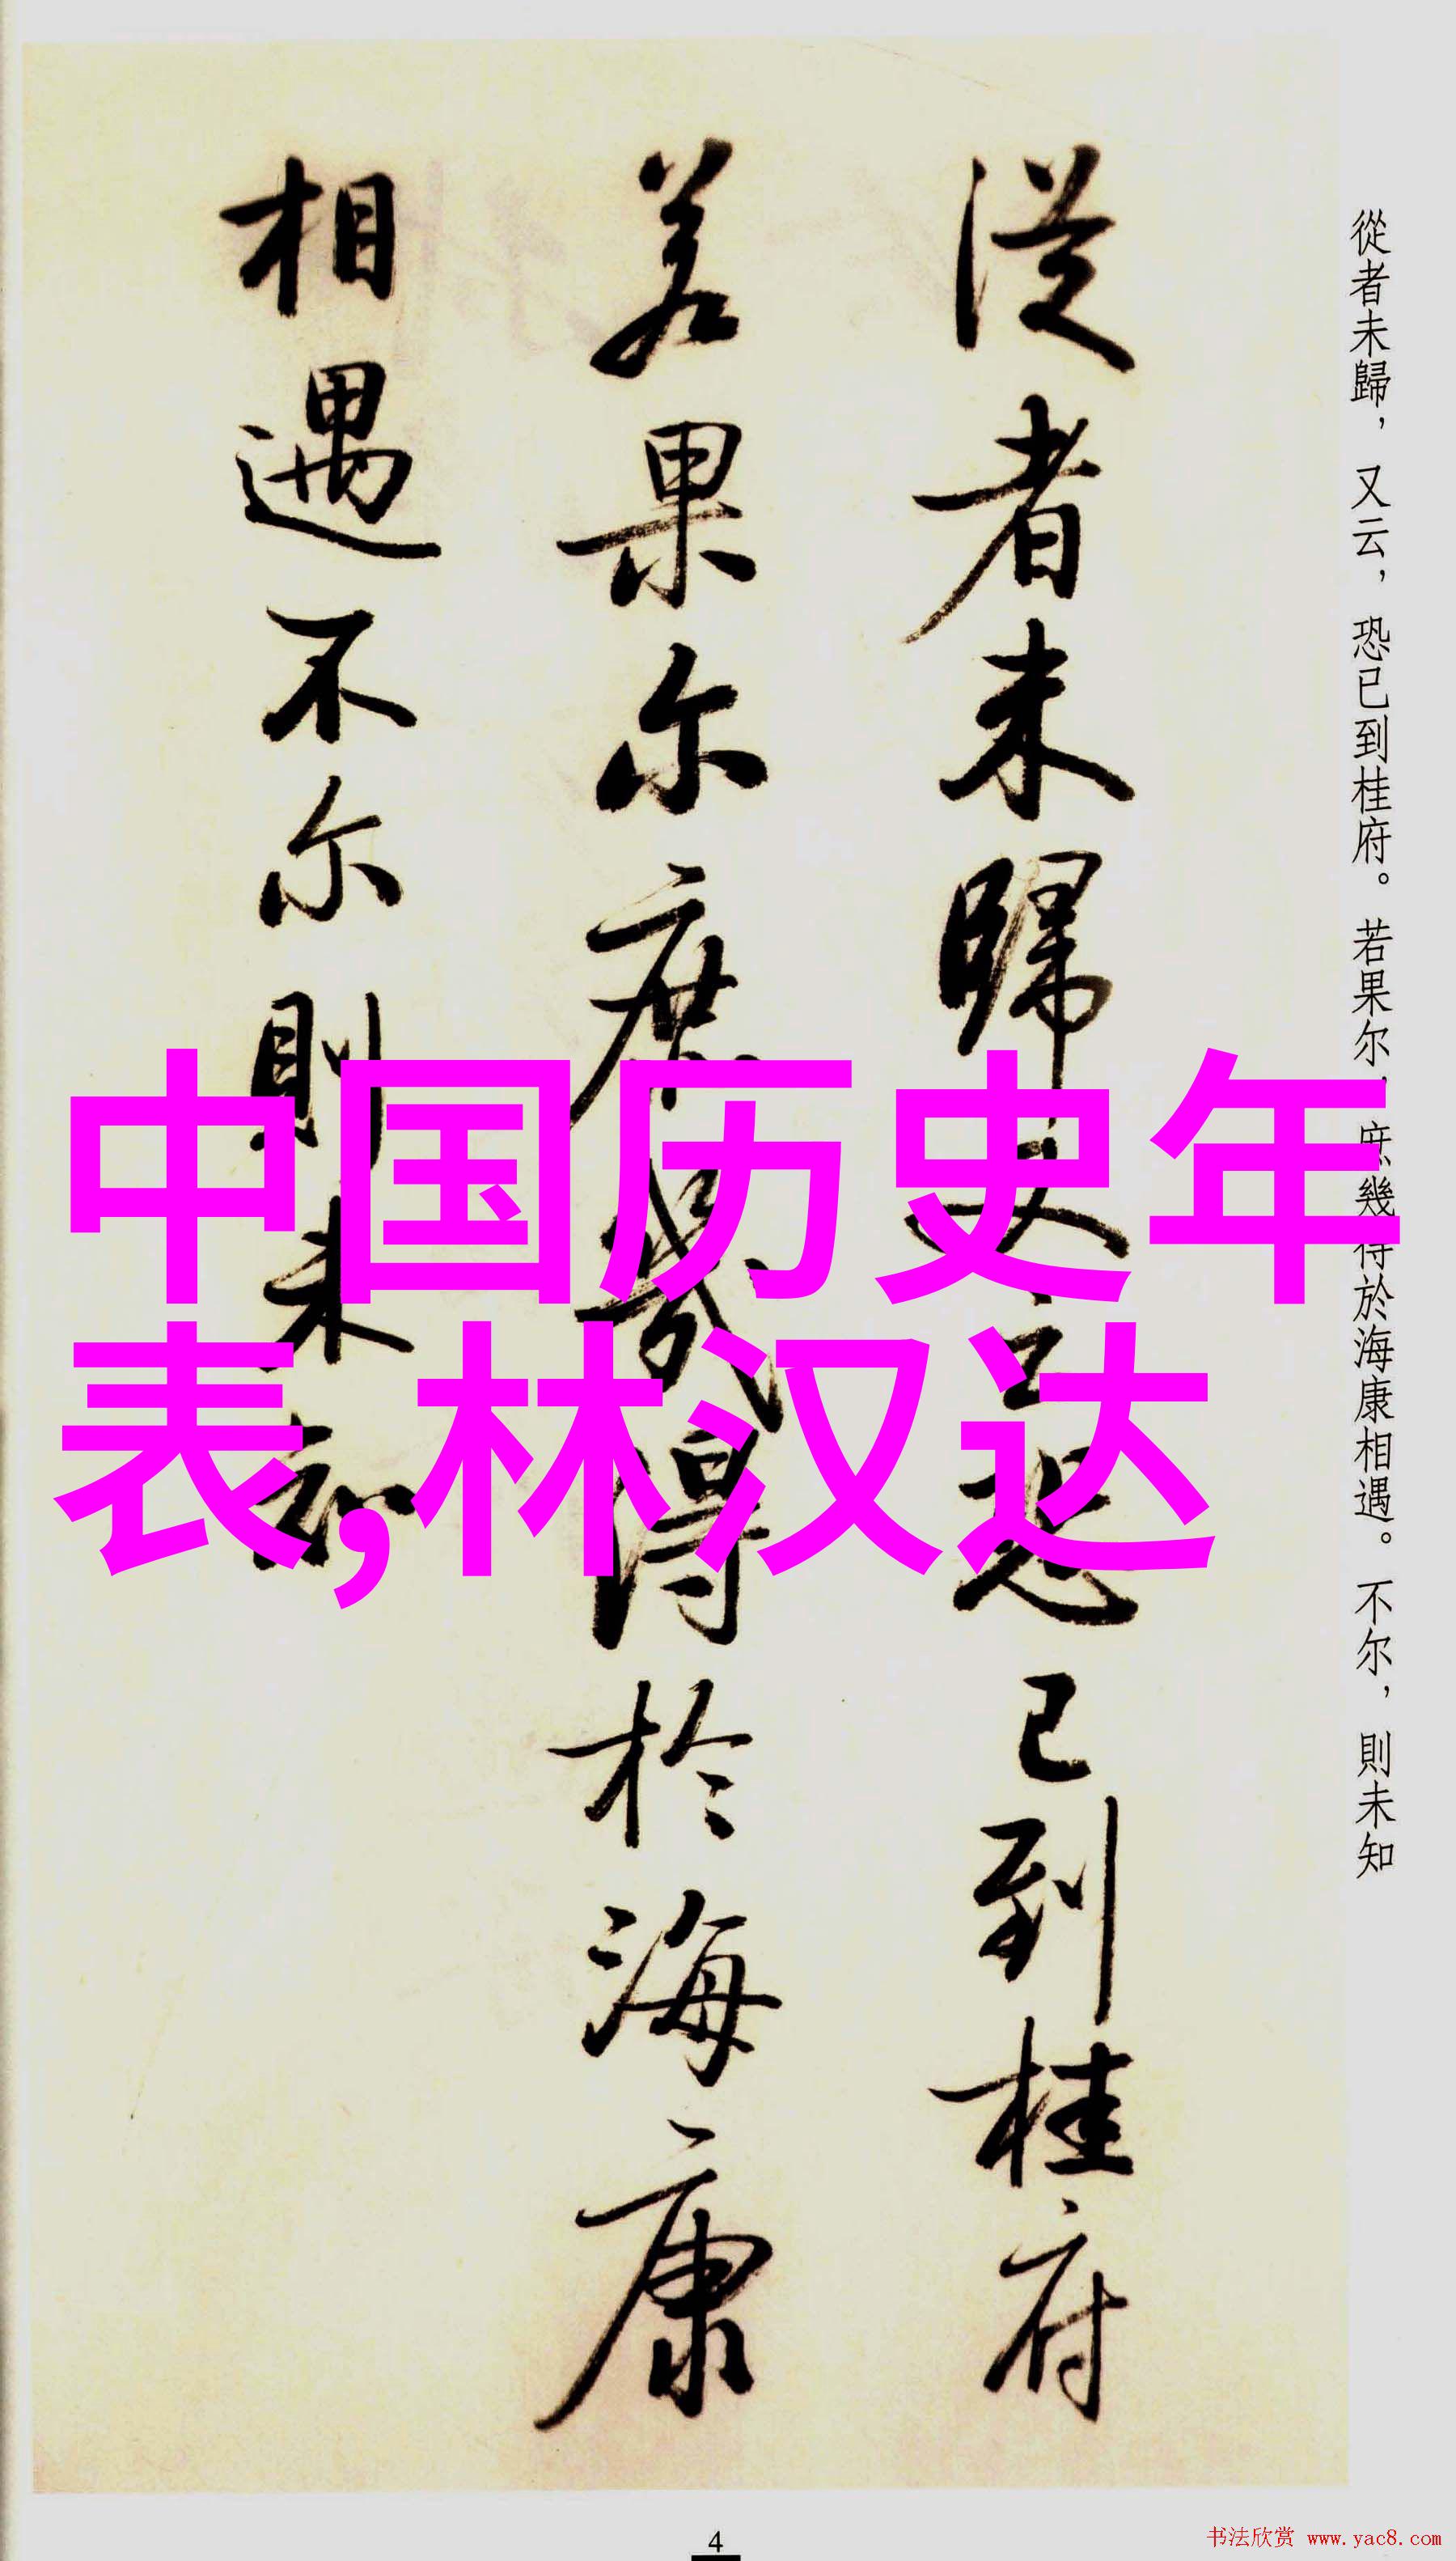 從者未歸，又云，恐已到桂府。若果尔，庶幾得於海康相遇。不尔，則未知
従者未歸又云恐已到桂府
若果尔庶幾得於海康
相遇不尔則未知
中国历史年
表,林汉达
4
书法欣赏 www.yac8.com